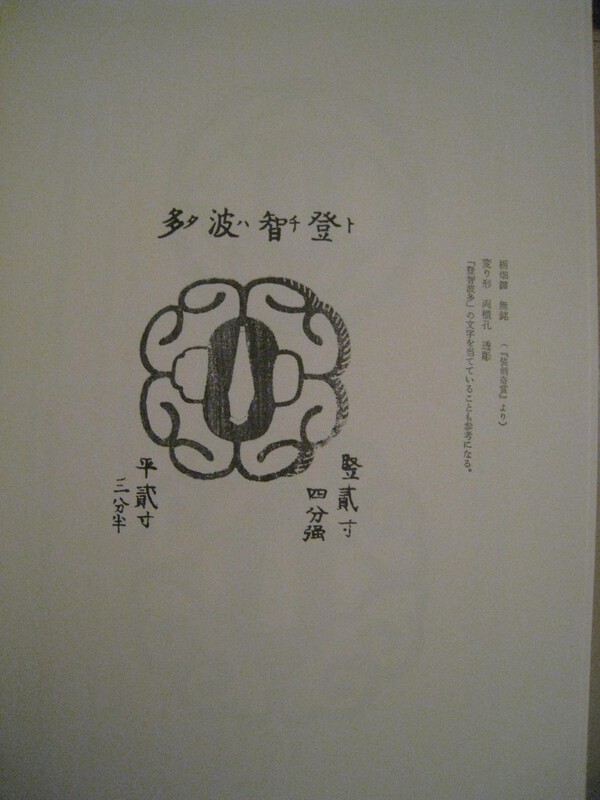 栃畑鐔　無銘　（『装剣奇賞』より）
変り形　両櫃孔　透彫
『登智波多』の文字を当てていることも参考になる。
登ト智チ波ハ多タ
竪貳寸
四分强
平貳寸
三分半